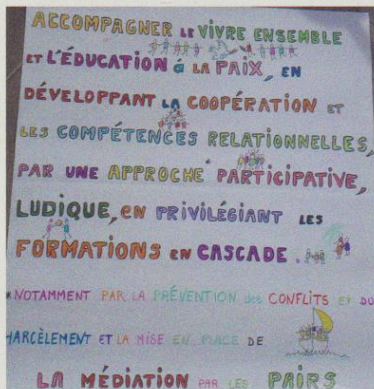 ACCOMPAGNER LE VIVRE ENSEMBLE
ET L'ÉDUCATION à LA PAIX, EN
DÉVELOPPANT LA COOPÉRATION ET
LES COMPÉTENCES RELATIONNELLES,
PAR UNE APPROCHE PARTICIPATIVE,
LUDIQUE, en PRIVILÉGIANT LES
FORMATIONS en CASCADE.
*NOTAMMENT PAR LA PRÉVENTION des CONFLITS ET DU
HARCÈLEMENT ET LA MISE EN PLACE DE
LA MÉDIATION PAR LES PAIRS